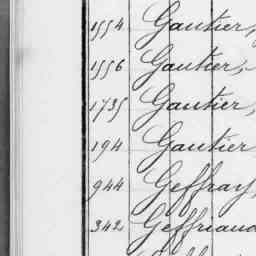 1554 Gautier,
1556 Gautier,
1735 Gautier,
194 Gautier
944 Geffray,
342 Geffriaud